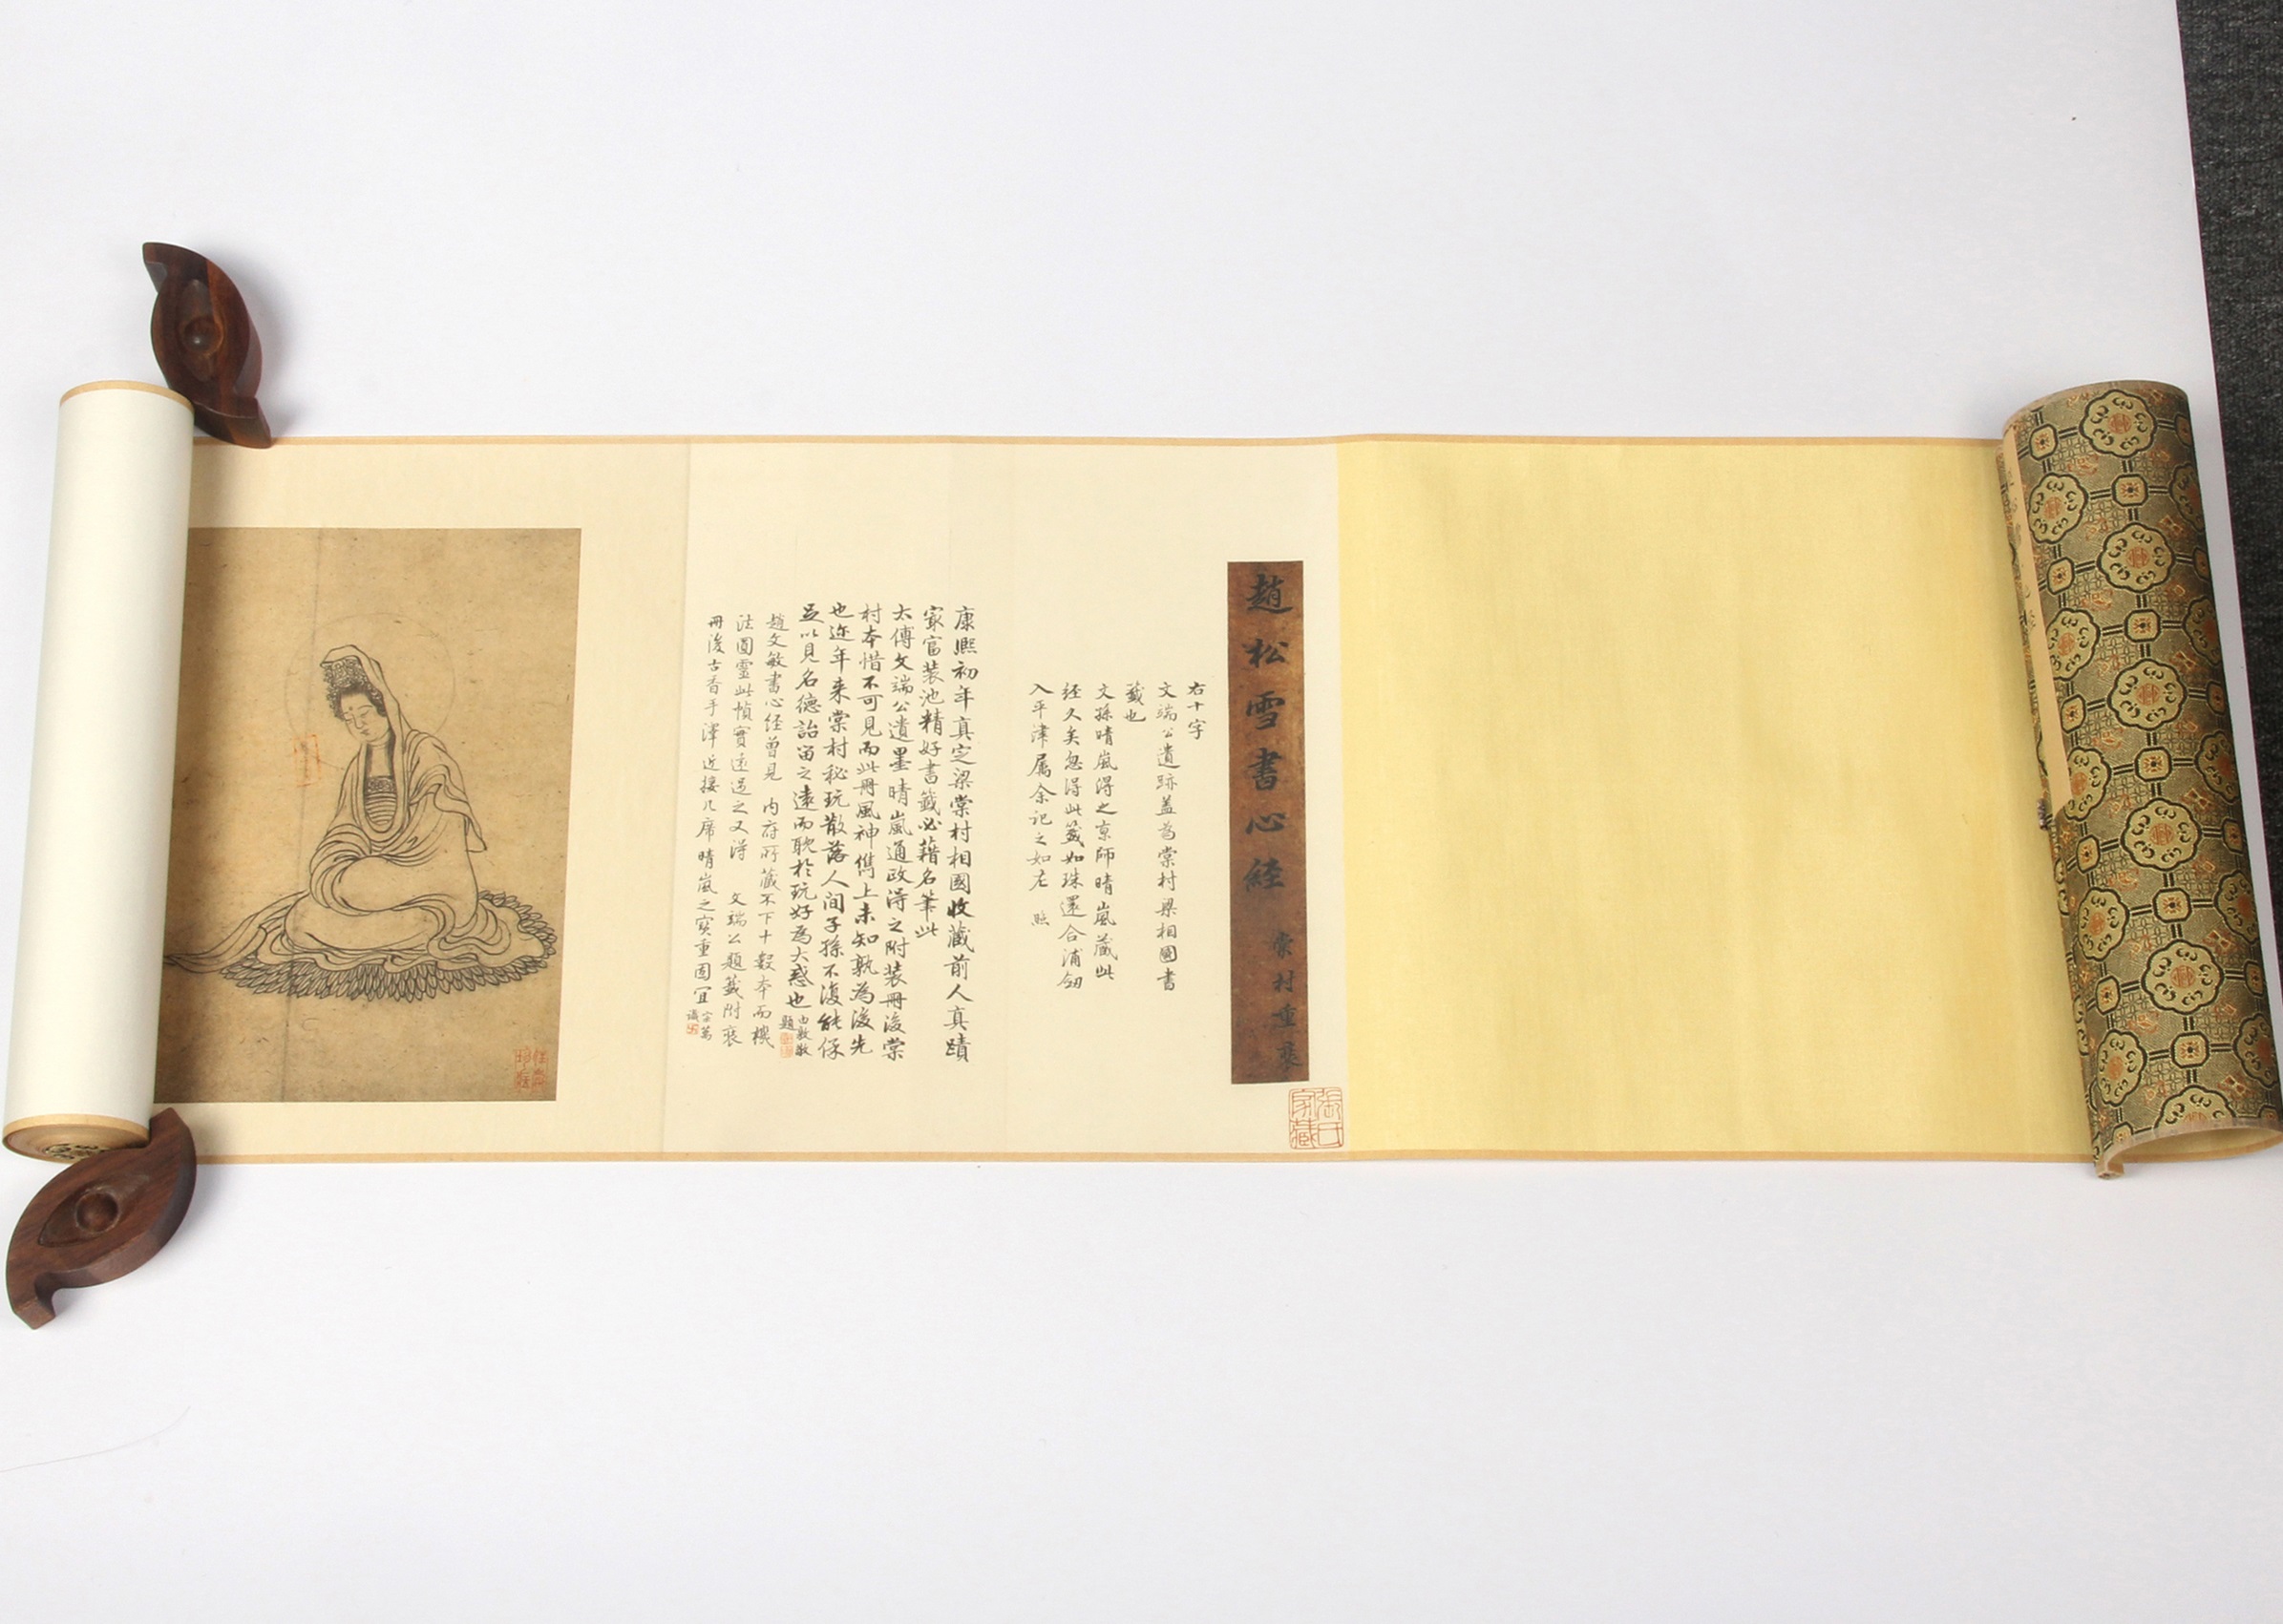 趙松雪書心經
棠村重裝
張氏家藏
右十字
文端公遺跡蓋為棠村梁相國書
籤也
文孫晴嵐得之京師晴嵐藏此
經久矣忽得此籤如珠還合浦劒
入平津屬余記之如左 照
康熙初年真定梁棠村相國收藏前人真蹟
家富裝池精好書籤必藉名筆此
太傅文端公遺墨晴嵐通政得之附裝冊後棠
村本惜不可見而此冊風神儁上未知孰為後先
也近年来棠村秘玩散落人间子孫不復能保
足以見名德詒留之遠而耽於玩好為大惑也
由敦敬題
趙文敏書心經曾見 内府所藏不下十數本而機
法圓靈此幀實遠過之又得 文端公題籤附裝
冊後古香手澤近接几席晴嵐之寶重固宜
宗萬